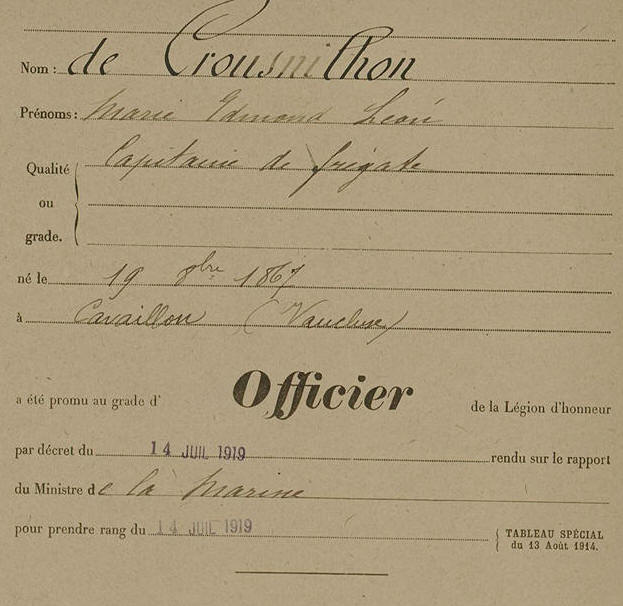 Nom : de Crousnilhon
Prénoms : Marie Edmond Léon
Qualité ou grade. Capitaine de frégate
né le 19 8bre 1867
à Cavaillon (Vaucluse)
a été promu au grade d' Officier de la Légion d'honneur
par décret du 14 JUIL 1919 rendu sur le rapport
du Ministre de la Marine
pour prendre rang du 14 JUIL 1919 { TABLEAU SPÉCIAL
du 13 Août 1914.